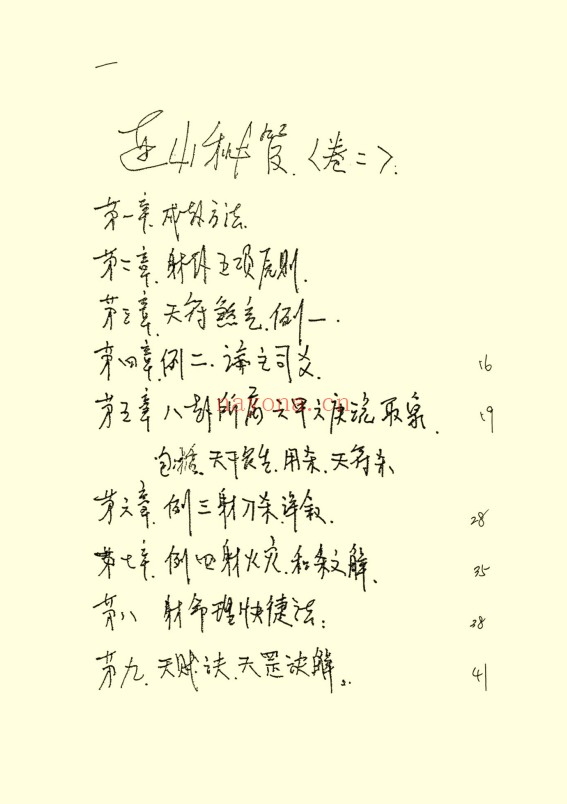 一
连山秘笈〈卷二〉.
第一章.成卦方法.
第二章.射卦五项原则.
第三章.天符煞气.例一.
第四章.例二.论之司爻. 16
第五章.八卦所病六甲六庚说取象. 19
nayona.cn
包括.天干衰生.用杀.天符杀.
第六章.例三射刀杀详叙. 28
第七章.例四射火灾.和条文解. 35
第八 射命理快捷法: 38
第九.天赋诀.天罡诀解。 41